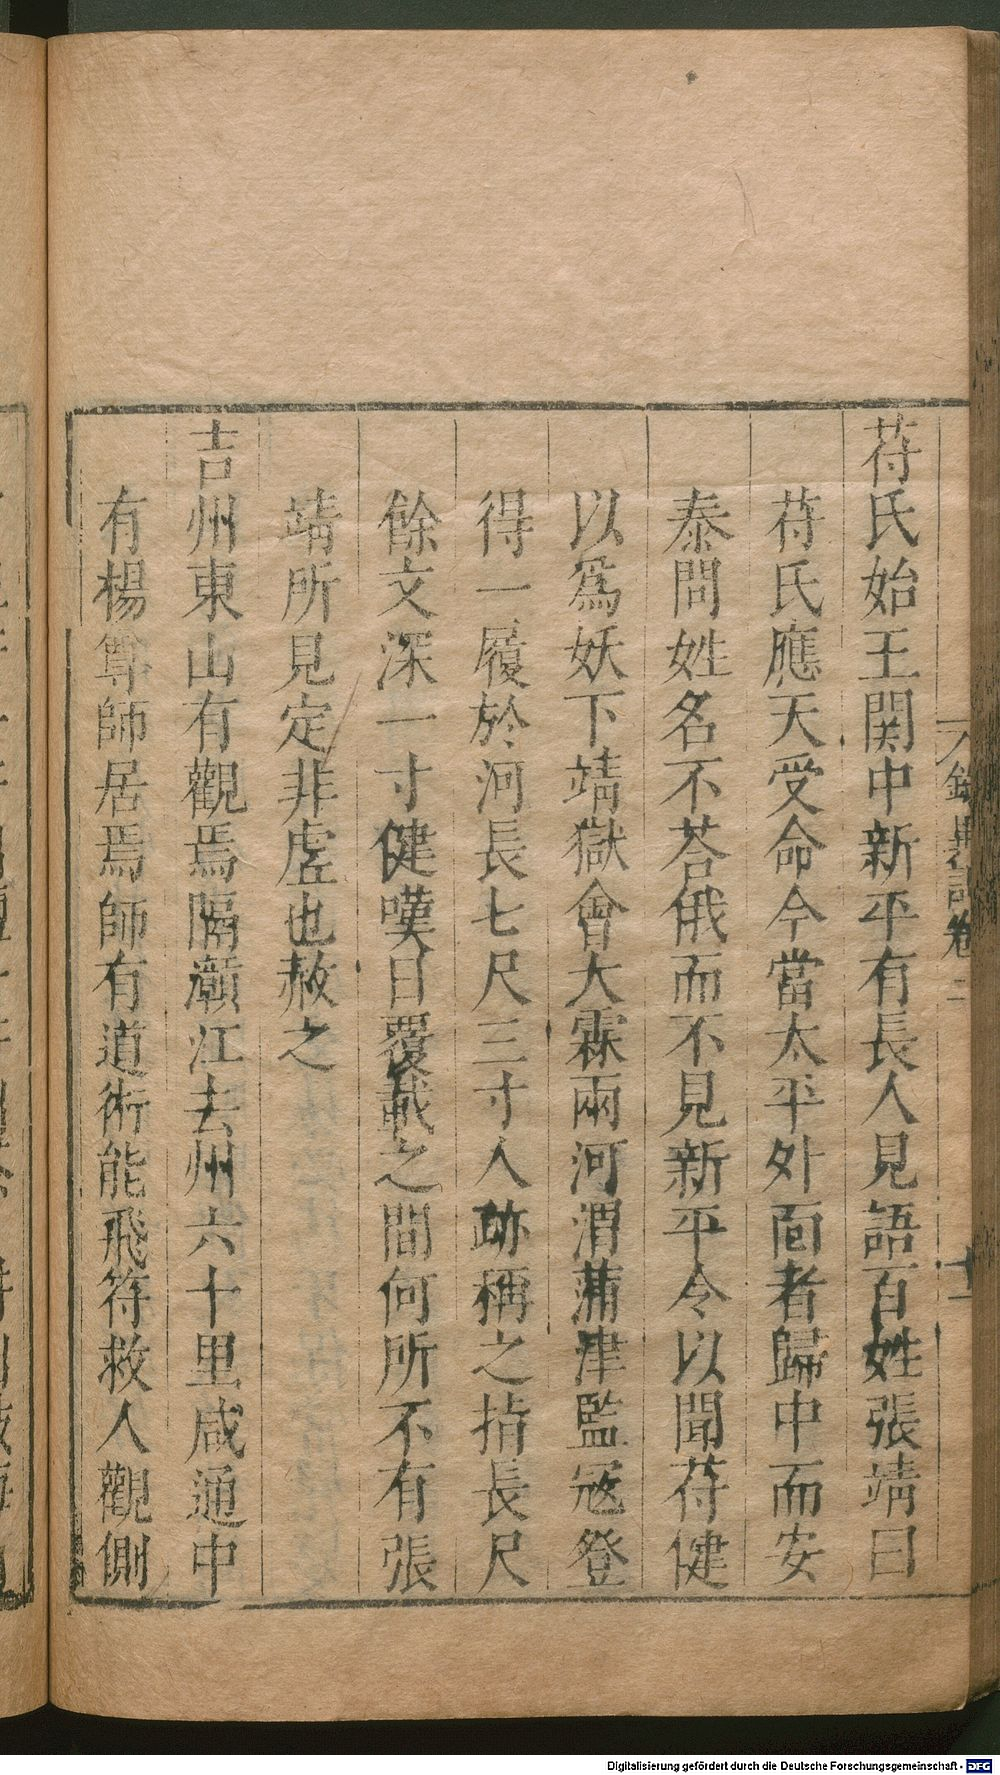 苻氏始王関中新平有長人見語百姓張靖曰
苻氏應天受命今當太平外面者歸中而安
泰問姓名不荅俄而不見新平令以聞苻健
以爲妖下靖獄會大霖雨河渭蒲津監冦登
得一履於河長七尺三寸人跡稱之指長尺
餘文深一寸健嘆曰覆載之間何所不有張
靖所見定非虚也赦之
吉州東山有觀焉隔贑江去州六十里咸通中
有楊尊師居焉師有道術能飛符救人觀側
錄異記卷二
十一
Digitalisierung gefördert durch die Deutsche Forschungsgemeinschaft - DFG